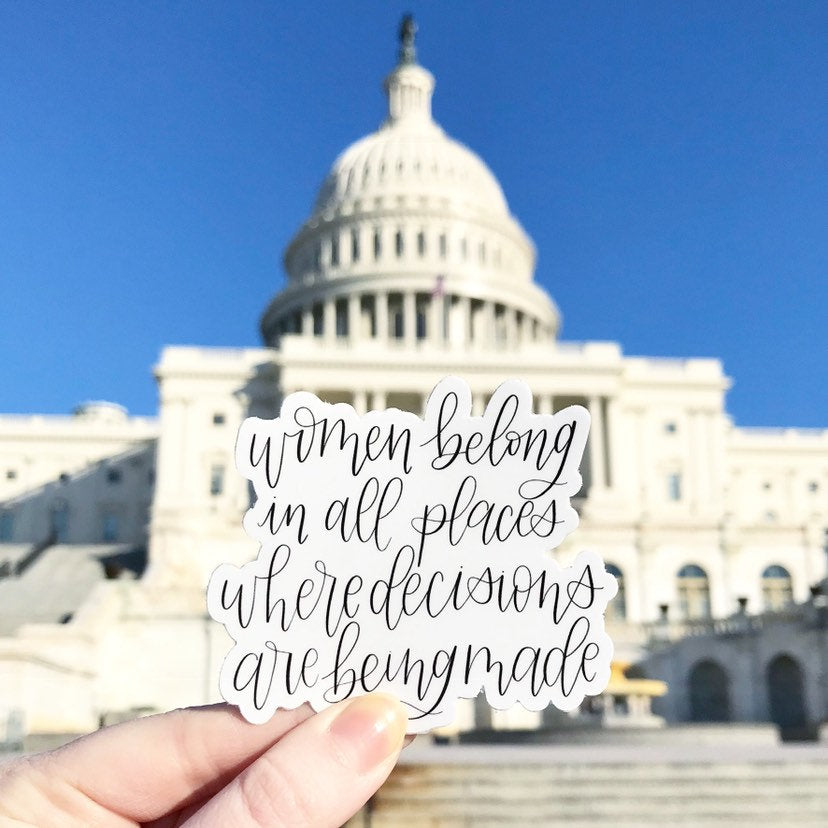 women belong
in all places
where decisions
are being made